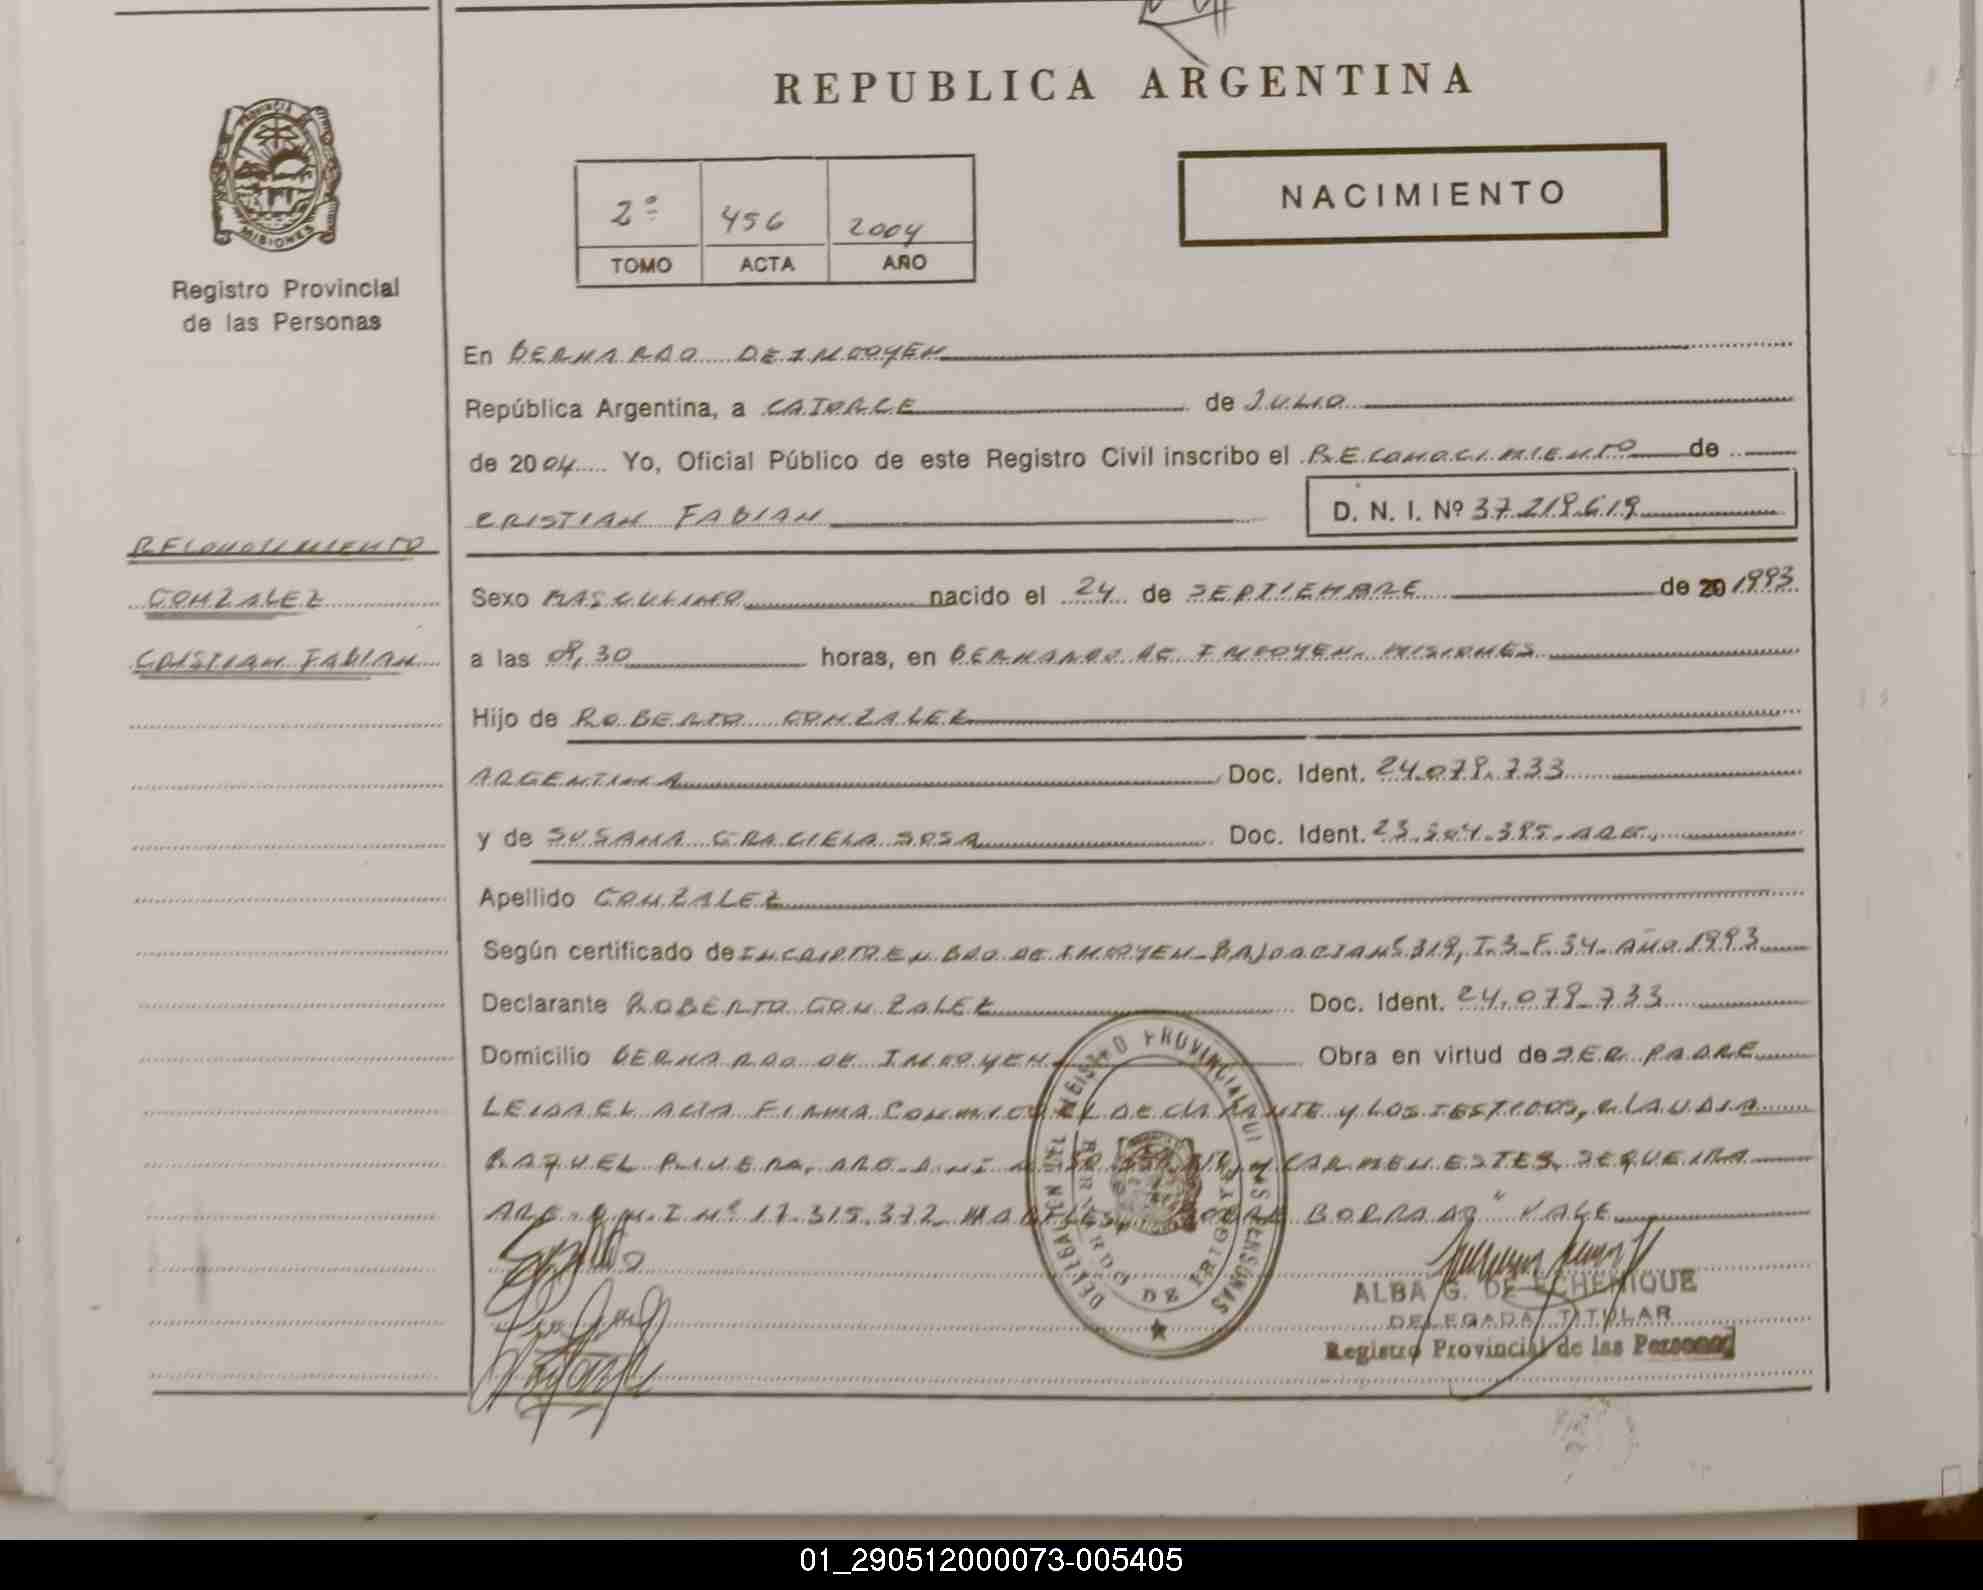 REPUBLICA ARGENTINA
NACIMIENTO
2º 456 2004
TOMO ACTA AÑO
PROVINCIA DE MISIONES
Registro Provincial
de las Personas
En BERNARDO DE IRIGOYEN
República Argentina, a CATORCE de JULIO
de 2004 Yo, Oficial Público de este Registro Civil inscribo el RECONOCIMIENTO de
CRISTIAN FABIAN D. N. I. Nº 37.219.619
RECONOCIMIENTO
GONZALEZ
CRISTIAN FABIAN
Sexo MASCULINO nacido el 24 de SEPTIEMBRE de 20 1993
a las 08,30 horas, en BERNARDO DE IRIGOYEN. MISIONES
Hijo de ROBERTO GONZALEZ
ARGENTINA Doc. Ident. 24.079.733
y de SUSANA GRACIELA SOSA Doc. Ident. 23.504.395. ARG.
Apellido GONZALEZ
Según certificado de INSCRIPTO EN BDO DE IRIGOYEN BAJO ACTA Nº 319, T.3 F.34. AÑO 1993
Declarante ROBERTO GONZALEZ Doc. Ident. 24.079.733
Domicilio BERNARDO DE IRIGOYEN Obra en virtud de SER PADRE
LEIDA EL ACTA FIRMA CONMIGO EL DECLARANTE Y LOS TESTIGOS, CLAUDIA
RAQUEL RIVERA, ARG. D.N.I. Y CARMEN ESTER SEQUEIRA
ARG. D.N.I Nº 17.315.372. MARTES, SOBRE BORRADO "VALE
REGISTRO PROVINCIAL DE LAS PERSONAS
BERNARDO DE IRIGOYEN
ALBA G. DE ECHENIQUE
DELEGADA TITULAR
Registro Provincial de las Personas
01_290512000073-005405